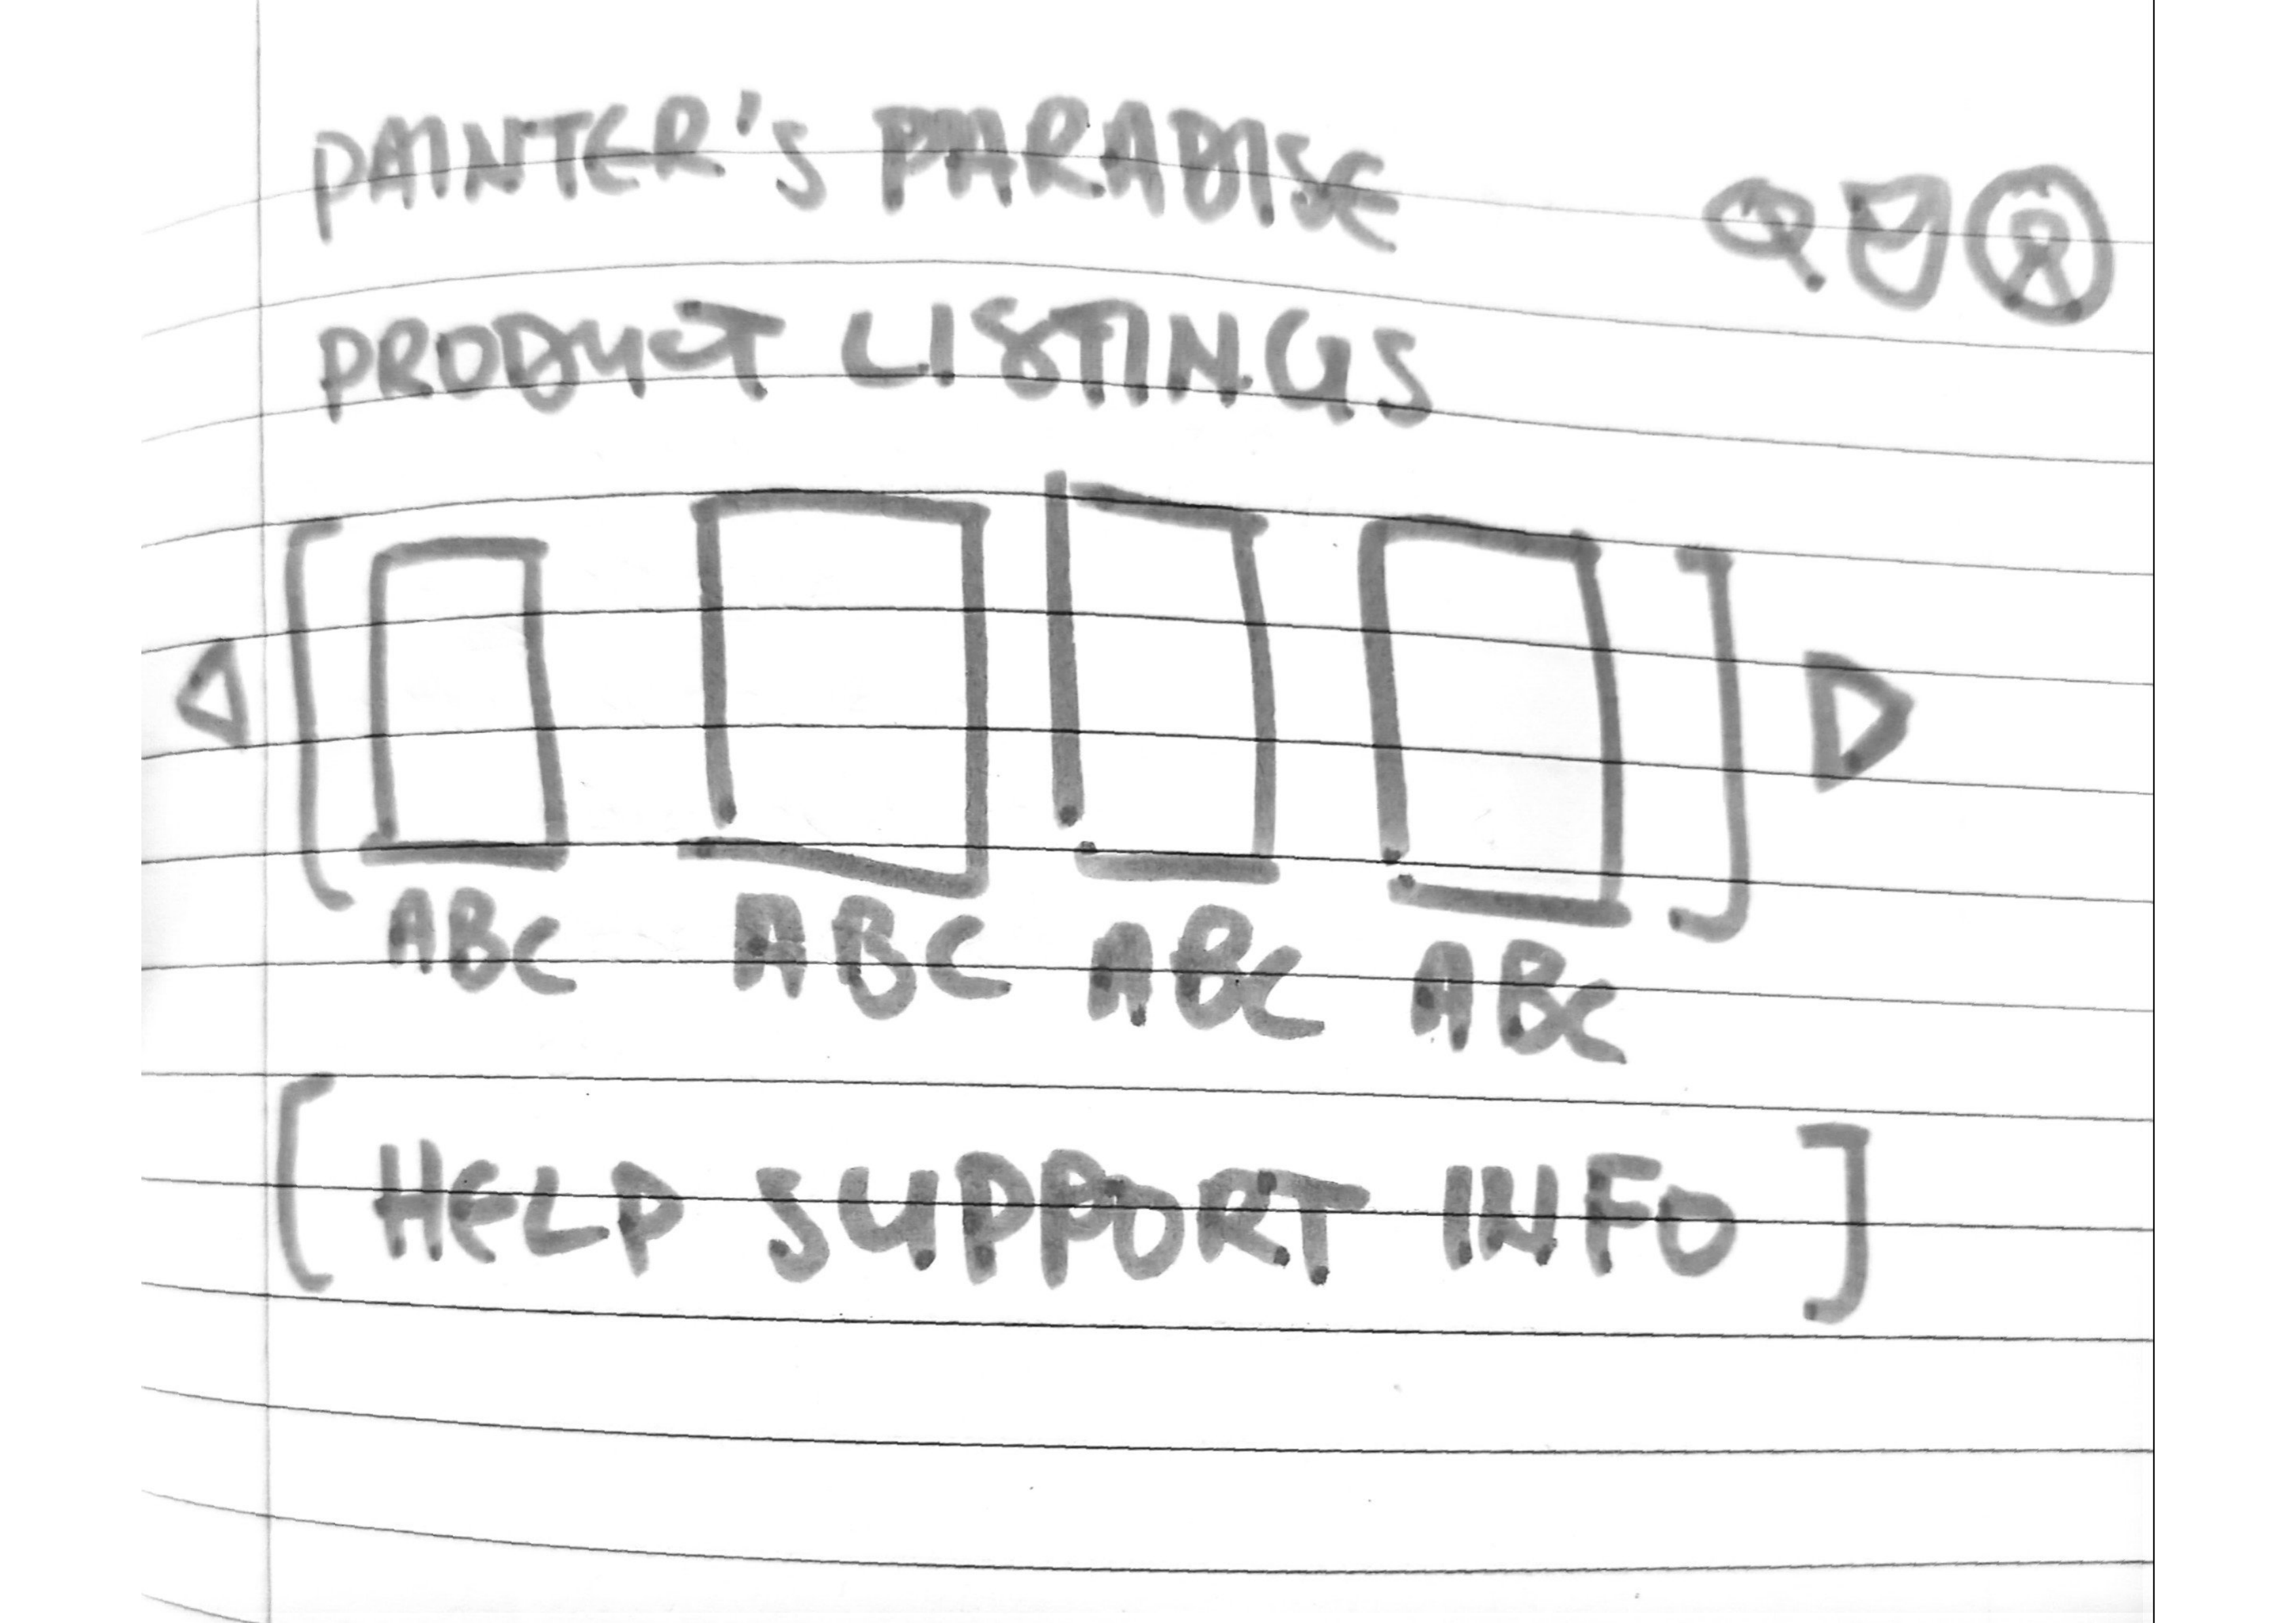 PAINTER'S PARADISE
PRODUCT LISTINGS
ABC ABC ABC ABC
[HELP SUPPORT INFO]